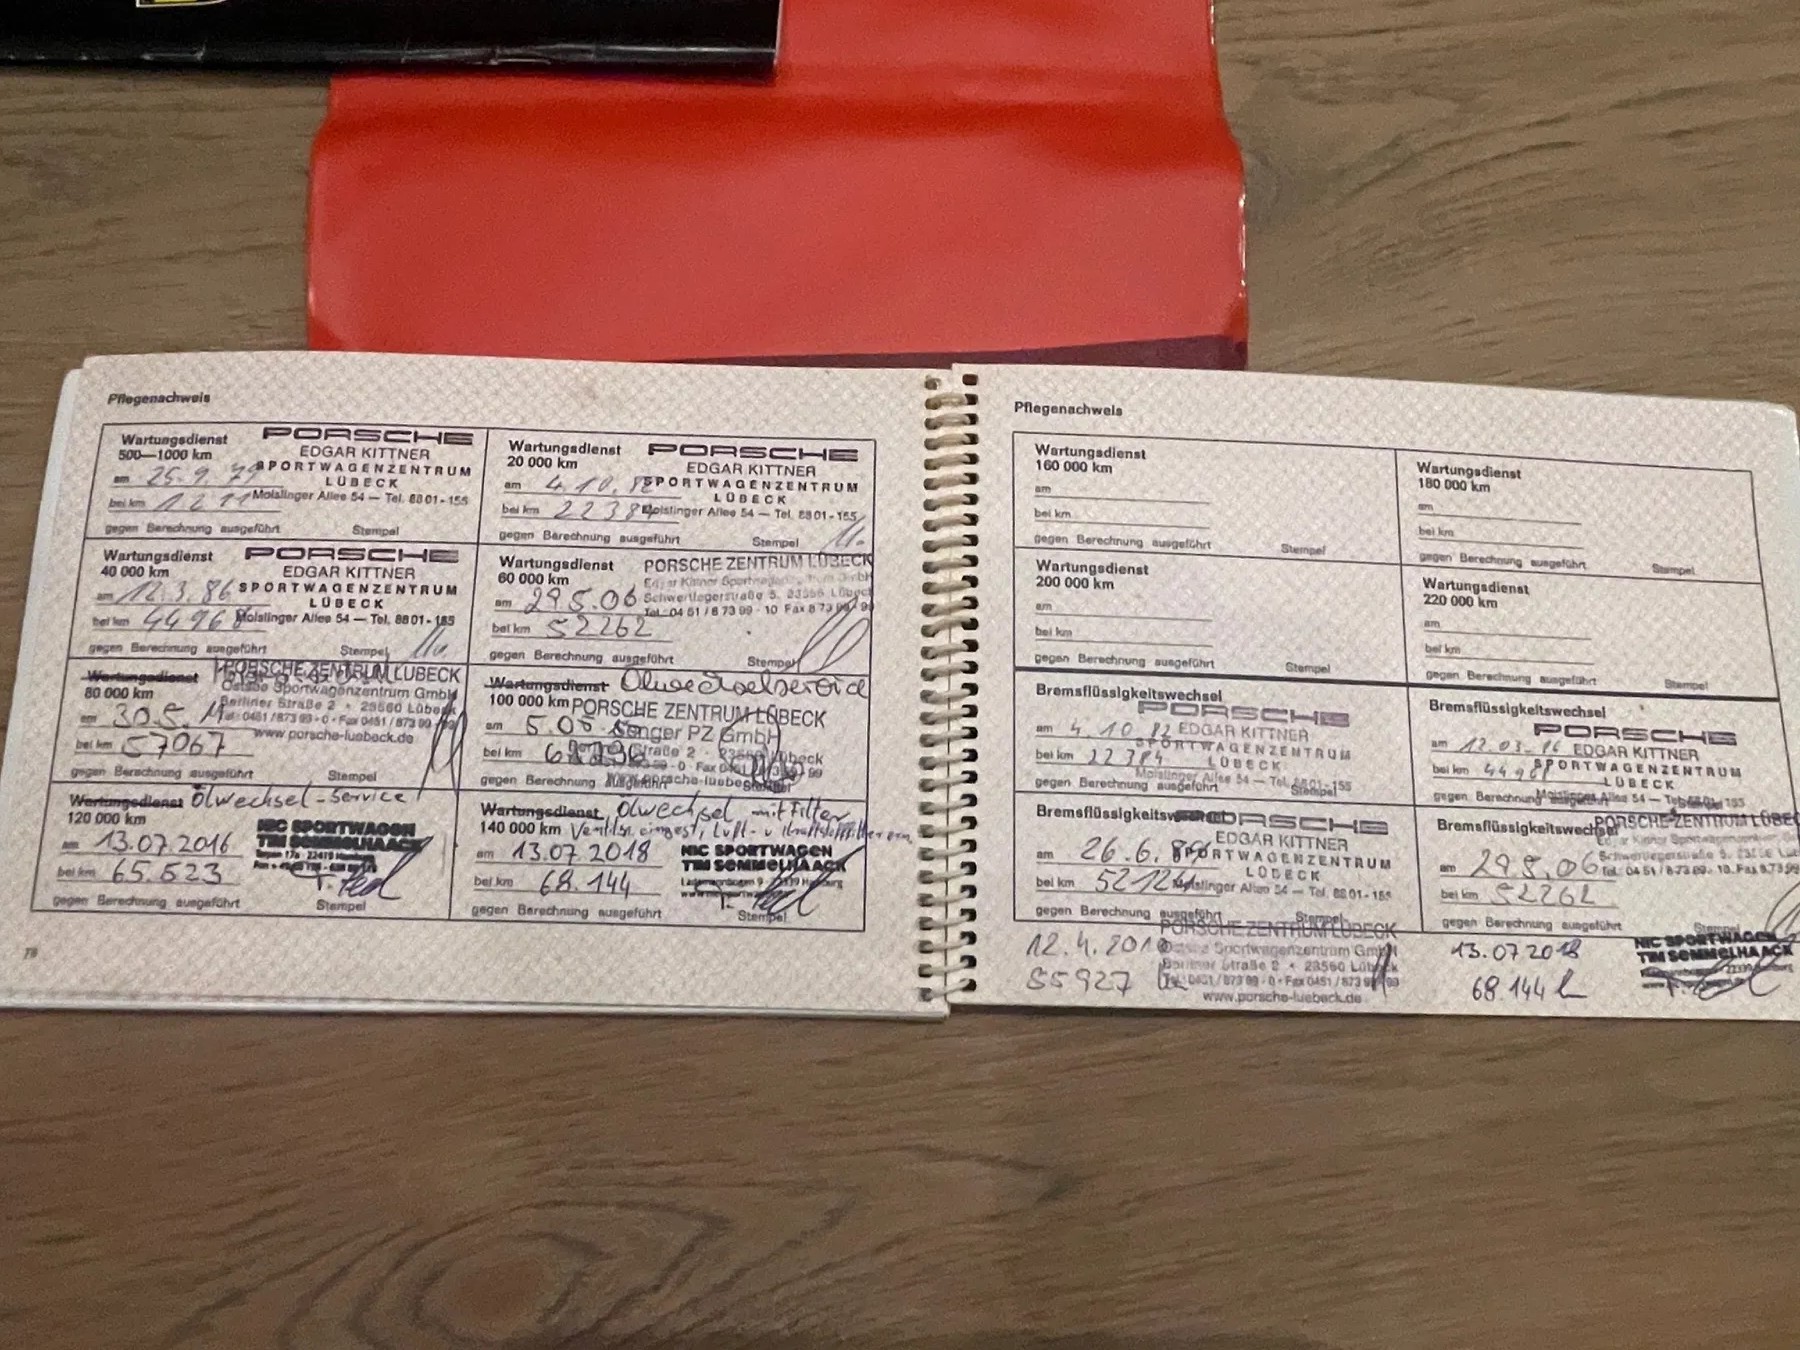 Pflegenachweis
Wartungsdienst
500—1000 km
PORSCHE
EDGAR KITTNER
SPORTWAGENZENTRUM
LÜBECK
Moislinger Allee 54 — Tel. 8801-155
am 25.9.79
bei km 1211
gegen Berechnung ausgeführt Stempel
Wartungsdienst
20 000 km
PORSCHE
EDGAR KITTNER
SPORTWAGENZENTRUM
LÜBECK
Moislinger Allee 54 — Tel. 8801-155
am 4.10.82
bei km 22384
gegen Berechnung ausgeführt Stempel
Wartungsdienst
40 000 km
PORSCHE
EDGAR KITTNER
SPORTWAGENZENTRUM
LÜBECK
Moislinger Allee 54 — Tel. 8801-155
am 12.3.86
bei km 44968
gegen Berechnung ausgeführt Stempel
Wartungsdienst
60 000 km
PORSCHE ZENTRUM LÜBECK
am 29.5.06
bei km 52262
gegen Berechnung ausgeführt Stempel
Wartungsdienst
80 000 km
PORSCHE ZENTRUM LÜBECK
Ostsee Sportwagenzentrum GmbH
Berliner Straße 2 • 23560 Lübeck
Tel. 0451/873 99-0 • Fax 0451/873 99
www.porsche-luebeck.de
am 30.5.11
bei km 57067
gegen Berechnung ausgeführt Stempel
Wartungsdienst Ölwechselservice
100 000 km
PORSCHE ZENTRUM LÜBECK
Senger PZ GmbH
am 5.05
bei km
gegen Berechnung ausgeführt Stempel
Wartungsdienst Ölwechsel-Service
120 000 km
NIC SPORTWAGEN
TIM SOMMELHAACK
am 13.07.2016
bei km 65.523
gegen Berechnung ausgeführt Stempel
Wartungsdienst, Ölwechsel mit Filter
140 000 km Ventilsp. eingest., Luft- u Kraftstofffilter ern.
NIC SPORTWAGEN
TIM SOMMELHAACK
am 13.07.2018
bei km 68.144
gegen Berechnung ausgeführt Stempel
78
Pflegenachweis
Wartungsdienst
160 000 km
am
bei km
gegen Berechnung ausgeführt Stempel
Wartungsdienst
180 000 km
am
bei km
gegen Berechnung ausgeführt Stempel
Wartungsdienst
200 000 km
am
bei km
gegen Berechnung ausgeführt Stempel
Wartungsdienst
220 000 km
am
bei km
gegen Berechnung ausgeführt Stempel
Bremsflüssigkeitswechsel
PORSCHE
EDGAR KITTNER
SPORTWAGENZENTRUM
LÜBECK
Moislinger Allee 54 — Tel. 8801-155
am 4.10.82
bei km 22384
gegen Berechnung ausgeführt Stempel
Bremsflüssigkeitswechsel
PORSCHE
EDGAR KITTNER
SPORTWAGENZENTRUM
LÜBECK
Moislinger Allee 54 — Tel. 8801-155
am 12.03.86
bei km 44968
gegen Berechnung ausgeführt Stempel
Bremsflüssigkeitswechsel
PORSCHE
EDGAR KITTNER
SPORTWAGENZENTRUM
LÜBECK
Moislinger Allee 54 — Tel. 8801-155
am 26.6.
bei km
gegen Berechnung ausgeführt Stempel
Bremsflüssigkeitswechsel
PORSCHE ZENTRUM LÜBECK
am 29.5.06
bei km 52262
gegen Berechnung ausgeführt Stempel
12.4.2010
55927
PORSCHE ZENTRUM LÜBECK
Ostsee Sportwagenzentrum GmbH
Berliner Straße 2 • 23560 Lübeck
Tel. 0451/873 99-0 • Fax 0451/873 99
www.porsche-luebeck.de
13.07.2018
68.144
NIC SPORTWAGEN
TIM SOMMELHAACK